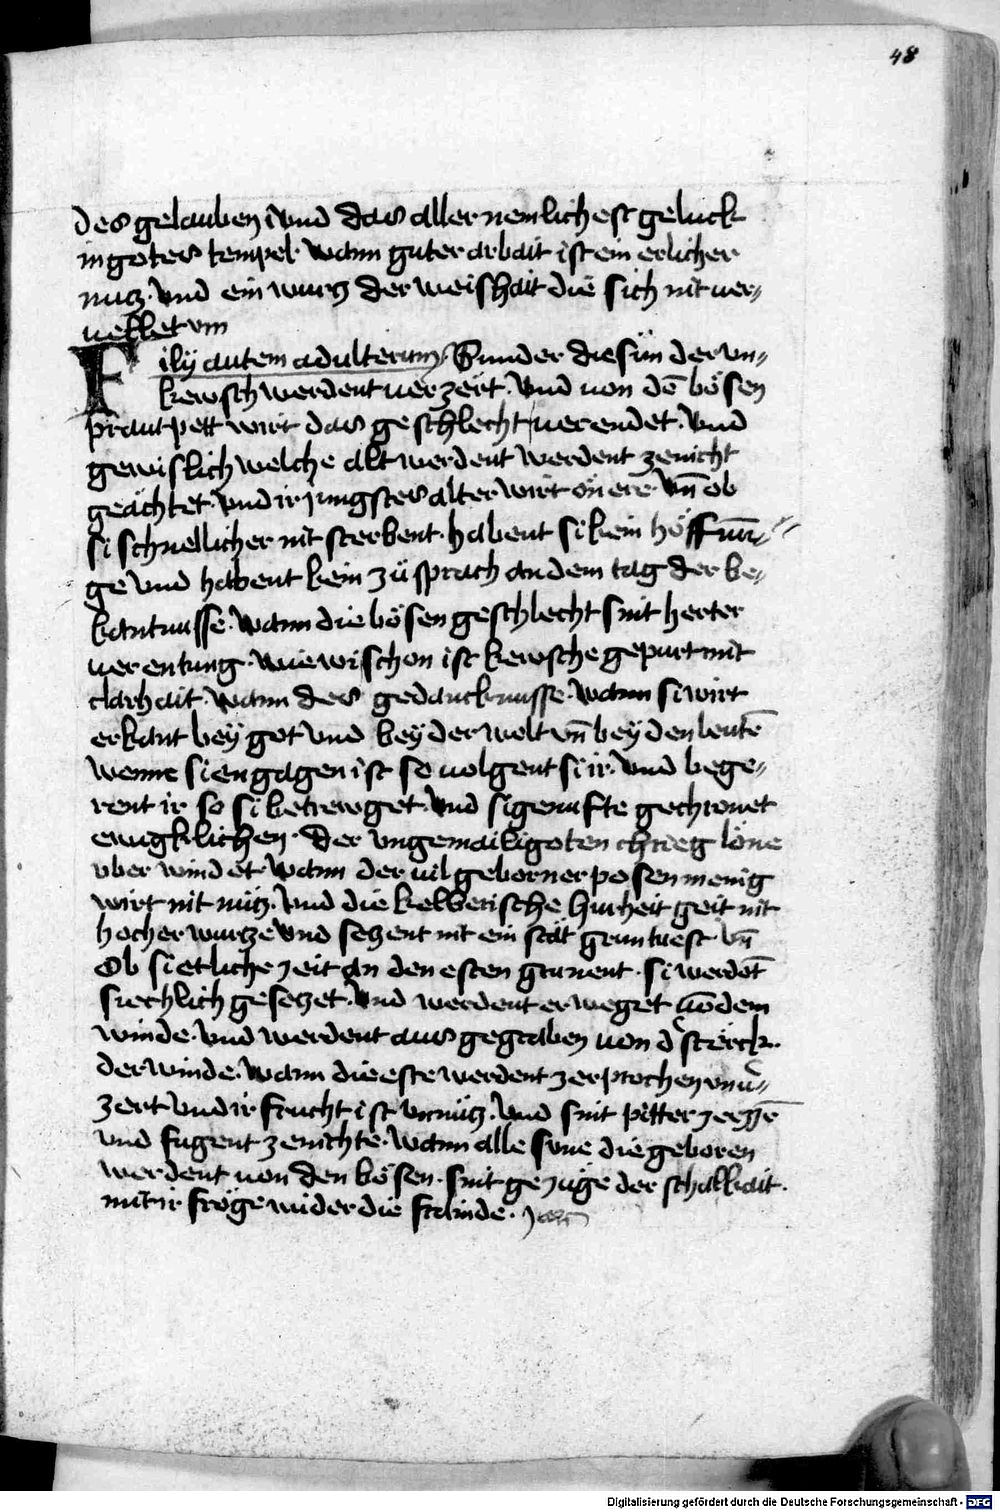 48
des gelauben vnd das aller nemlichest geluck
in gotes tempel wann guter arbait ist ein erlicher
nucz · vnd ein wurcz der weishait die sich nit uer=
uellet vm
Filÿ autem adulterium · Sunder die sün der vn=
kewsch werdent uerzert · vnd uon dē bösen
prautpett wirt das geschlecht uerendet · vnd
gewislich welche alt werdent werdent zenicht
geächtet · vnd ir jungstes alter wirt on ere vn̄ ob
si schnellicher nit sterbent · habent si kein höffnun=
ge vnd habent kein zü sprach an dem tag der be=
kantnusse · wann die bösen geschlecht sint herter
uerentung · wie wi schon ist kewsche gepurt mit
clarhait · wann des gedancknusse · wann si wirt
erkant beÿ got vnd beÿ der welt vn̄ beÿ den leutē
wenne si engagen ist so uolgent si ir · vnd bege=
rent ir so si betrewget · vnd sigenufte gechronet
ewigklichen · der vngemailigoten chrieg löne
vber windet · wann der uil geborner posen menig
wirt nit nücz · vnd die kelberische hurheit geit nit
hocher wurcze vnd seczent nit ein stät gruntuest · vn̄
Ob si etliche zeit an den esten grunent · si werdēt
siechlich geseczet · vnd werdent erweget uō dem
winde · vnd werdent aus gegraben uon d' sterck
der winde · wann die este werdent zerprochen vnu=
zert vnd ir frucht ist vnnücz · vnd sint pitter ze
vnd fugent zenichte · wann alle sune die geboren
werdent uon den bösen · sint gezüge der schalkait ·
mit ir fröge wider die frainde ·
Digitalisierung gefördert durch die Deutsche Forschungsgemeinschaft · DFG